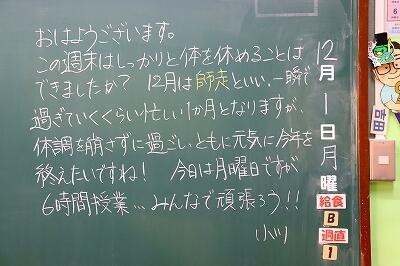 おはようございます。
この週末はしっかりと体を休めることは
できましたか？ 12月は師走といい、一瞬で
過ぎていくくらい忙しい1か月となりますが、
体調を崩さずに過ごし、ともに元気に今年を
終えたいですね！ 今日は月曜日ですが
6時間授業…みんなで頑張ろう!!
小川
12月1日月曜
給食
B
週直
1
吉田
6